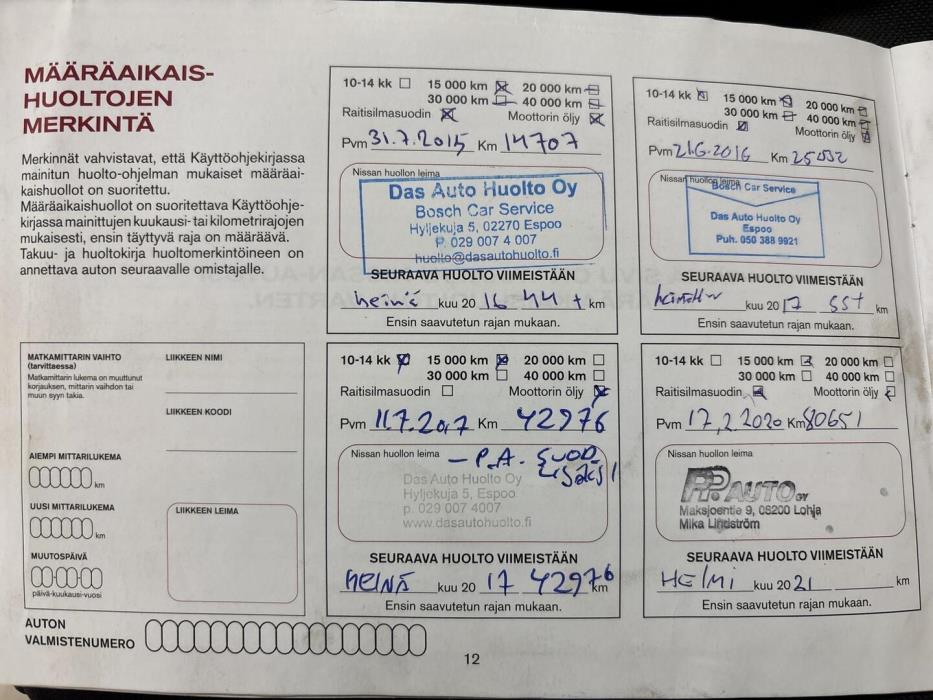 MÄÄRÄAIKAIS-
HUOLTOJEN
MERKINTÄ
Merkinnät vahvistavat, että Käyttöohjekirjassa
mainitun huolto-ohjelman mukaiset määräai-
kaishuollot on suoritettu.
Määräaikaishuollot on suoritettava Käyttöohje-
kirjassa mainittujen kuukausi- tai kilometrirajojen
mukaisesti, ensin täyttyvä raja on määräävä.
Takuu- ja huoltokirja huoltomerkintöineen on
annettava auton seuraavalle omistajalle.
10-14 kk 15 000 km 20 000 km
30 000 km 40 000 km
Raitisilmasuodin Moottorin öljy
Pvm 31.7.2015 Km 14707
Nissan huollon leima
Das Auto Huolto Oy
Bosch Car Service
Hyljekuja 5, 02270 Espoo
P. 029 007 4 007
huolto@dasautohuolto.fi
SEURAAVA HUOLTO VIIMEISTÄÄN
heinä kuu 20 16 44 t km
Ensin saavutetun rajan mukaan.
10-14 kk 15 000 km 20 000 km
30 000 km 40 000 km
Raitisilmasuodin Moottorin öljy
Pvm 21.6.2016 Km 25032
Nissan huollon leima
Bosch Car Service
Das Auto Huolto Oy
Espoo
Puh. 050 388 9921
SEURAAVA HUOLTO VIIMEISTÄÄN
kuu 20 17 55t km
Ensin saavutetun rajan mukaan.
MATKAMITTARIN VAIHTO
(tarvittaessa)
Matkamittarin lukema on muuttunut
korjauksen, mittarin vaihdon tai
muun syyn takia.
AIEMPI MITTARILUKEMA
km
UUSI MITTARILUKEMA
km
MUUTOSPÄIVÄ
päivä-kuukausi-vuosi
LIIKKEEN NIMI
LIIKKEEN KOODI
LIIKKEEN LEIMA
10-14 kk 15 000 km 20 000 km
30 000 km 40 000 km
Raitisilmasuodin Moottorin öljy
Pvm 11.7.2017 Km 42976
Nissan huollon leima – P.A. SUOD.
LISÄKSI
Das Auto Huolto Oy
Hyljekuja 5, Espoo
p. 029 007 4007
www.dasautohuolto.fi
SEURAAVA HUOLTO VIIMEISTÄÄN
HEINÄ kuu 20 17 42976 km
Ensin saavutetun rajan mukaan.
10-14 kk 15 000 km 20 000 km
30 000 km 40 000 km
Raitisilmasuodin Moottorin öljy
Pvm 17,2.2020 Km 80651
Nissan huollon leima
P.P. AUTO OY
Maksjoentie 9, 08200 Lohja
Mika Lindström
SEURAAVA HUOLTO VIIMEISTÄÄN
HELMI kuu 20 21 km
Ensin saavutetun rajan mukaan.
AUTON
VALMISTENUMERO
12